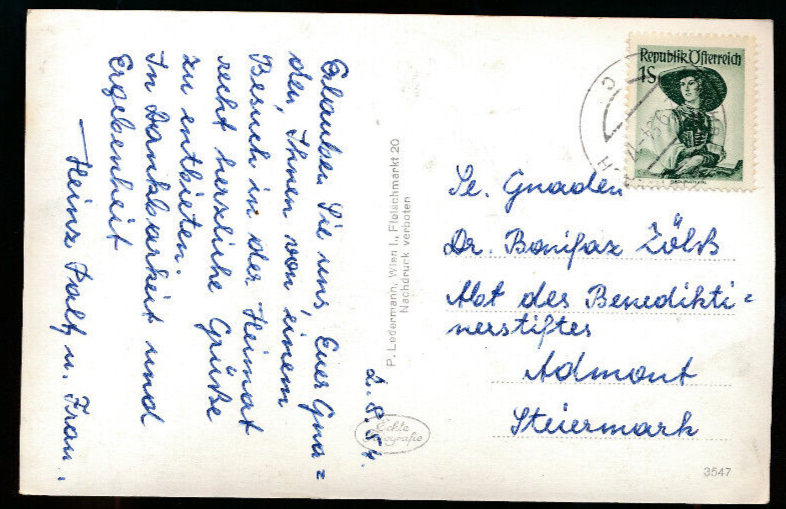 Erlauben Sie uns, Euer Gna=
den, Ihnen von einem
Besuch in der Heimat
recht herzliche Grüße
zu entbieten.
In Dankbarkeit und
Ergebenheit
— Heinz u. Frau.
2.8.54.
P. Ledermann, Wien I., Fleischmarkt 20
Nachdruck verboten
Echte
Fotografie
Republik Österreich
1S
Se. Gnaden
Dr. Bonifaz Zölß
Abt des Benedikti=
nerstiftes
Admont
Steiermark
3547